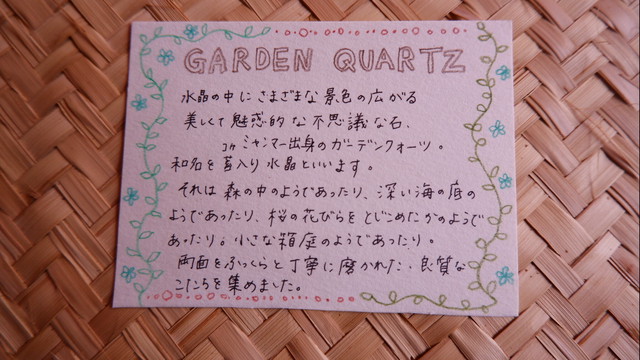 GARDEN QUARTZ
水晶の中にさまざまな景色の広がる
美しくて魅惑的な不思議な石、
ミャンマー出身のガーデンクォーツ。
和名を苔入り水晶といいます。
それは森の中のようであったり、深い海の底の
ようであったり、桜の花びらをとじこめたかのようで
あったり。小さな箱庭のようであったり。
両面をふっくらと丁寧に磨かれた、良質な
こたちを集めました。